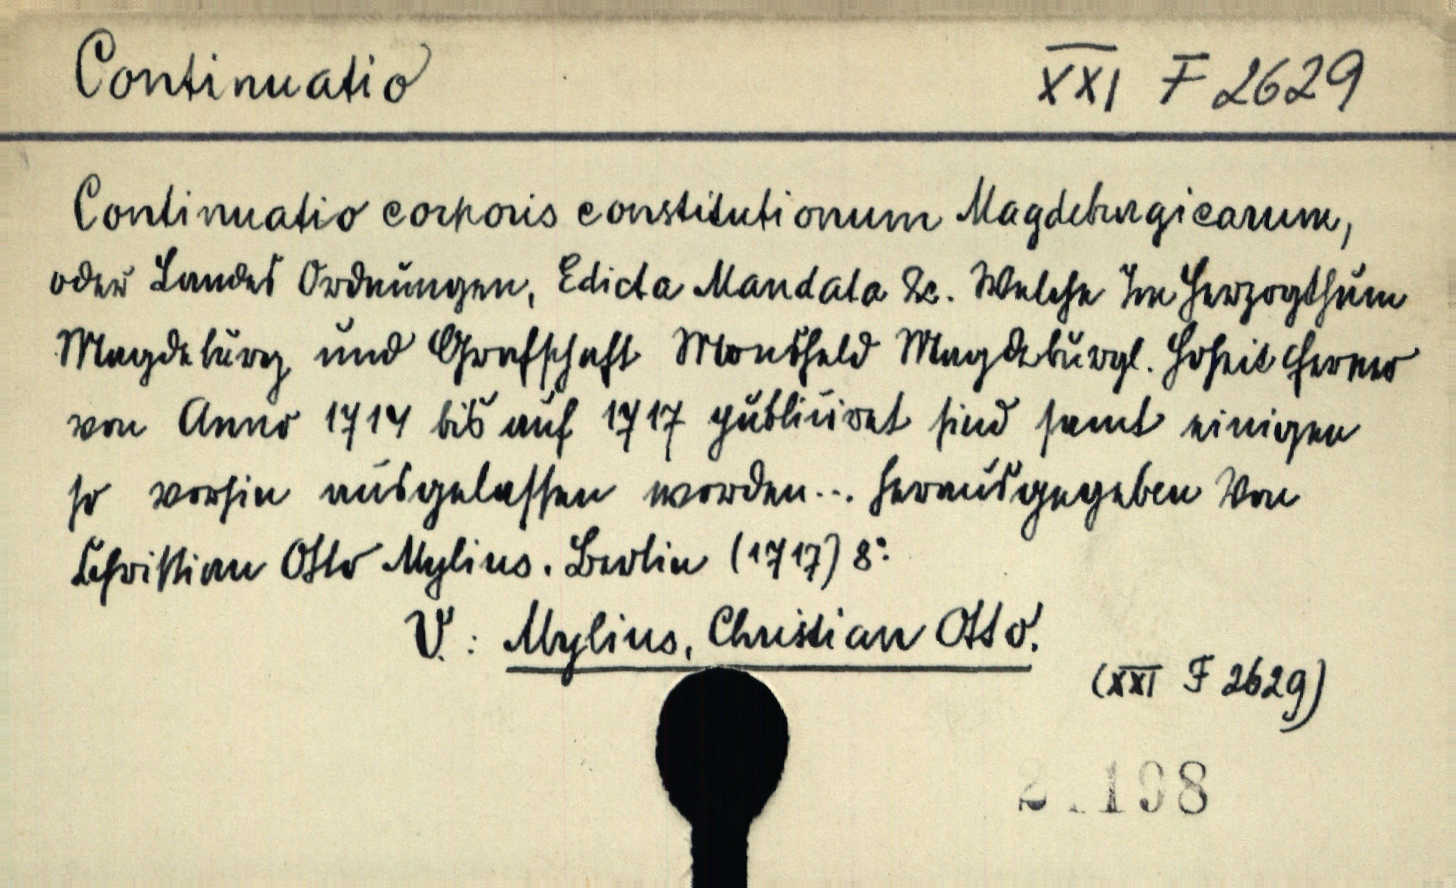 Continuatio XXI F 2629
Continuatio corporis constitutionum Magdeburgicarum,
oder Landes Ordnungen, Edicta Mandata &c. Welche Im Herzogthum
Magdeburg und Grafschaft Mansfeld Magdeburgl. Hoheit ferner
von Anno 1714 bis auf 1717 publiciret sind samt einigen
so vorhin ausgelassen worden... herausgegeben Von
Christian Otto Mylius. Berlin (1717) 8°.
V.: Mylius, Christian Otto.
(XXI F 2629)